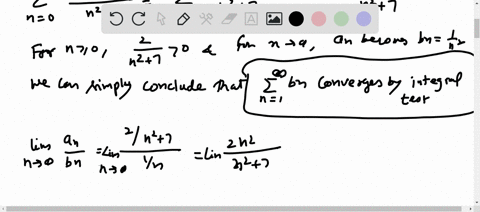 n=0 n² n²+7
For n≥0, 2/n²+7 >0 & for n→a, an becomes bn=1/n²
we can simply conclude that ∞∑n=1 bn converges by integral
test
lim n→0 an/bn = lim n→0 2/n²+7 / 1/n = lin 2n²/n²+7